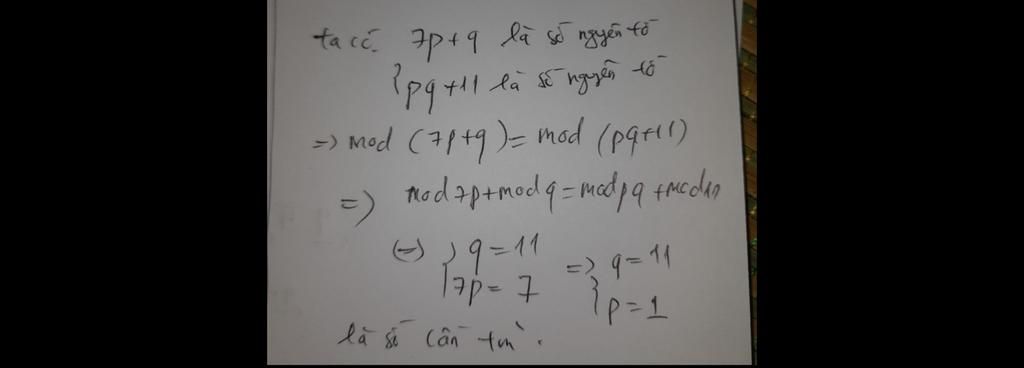 ta có. 7p+q là số nguyên tố
{pq+11 là số nguyên tố
=> mod (7p+q) = mod (pq+11)
=> mod 7p + mod q = mod pq + mod 11
(=) { q = 11 => q = 11
{ 7p = 7 { p = 1
là số cần tìm.